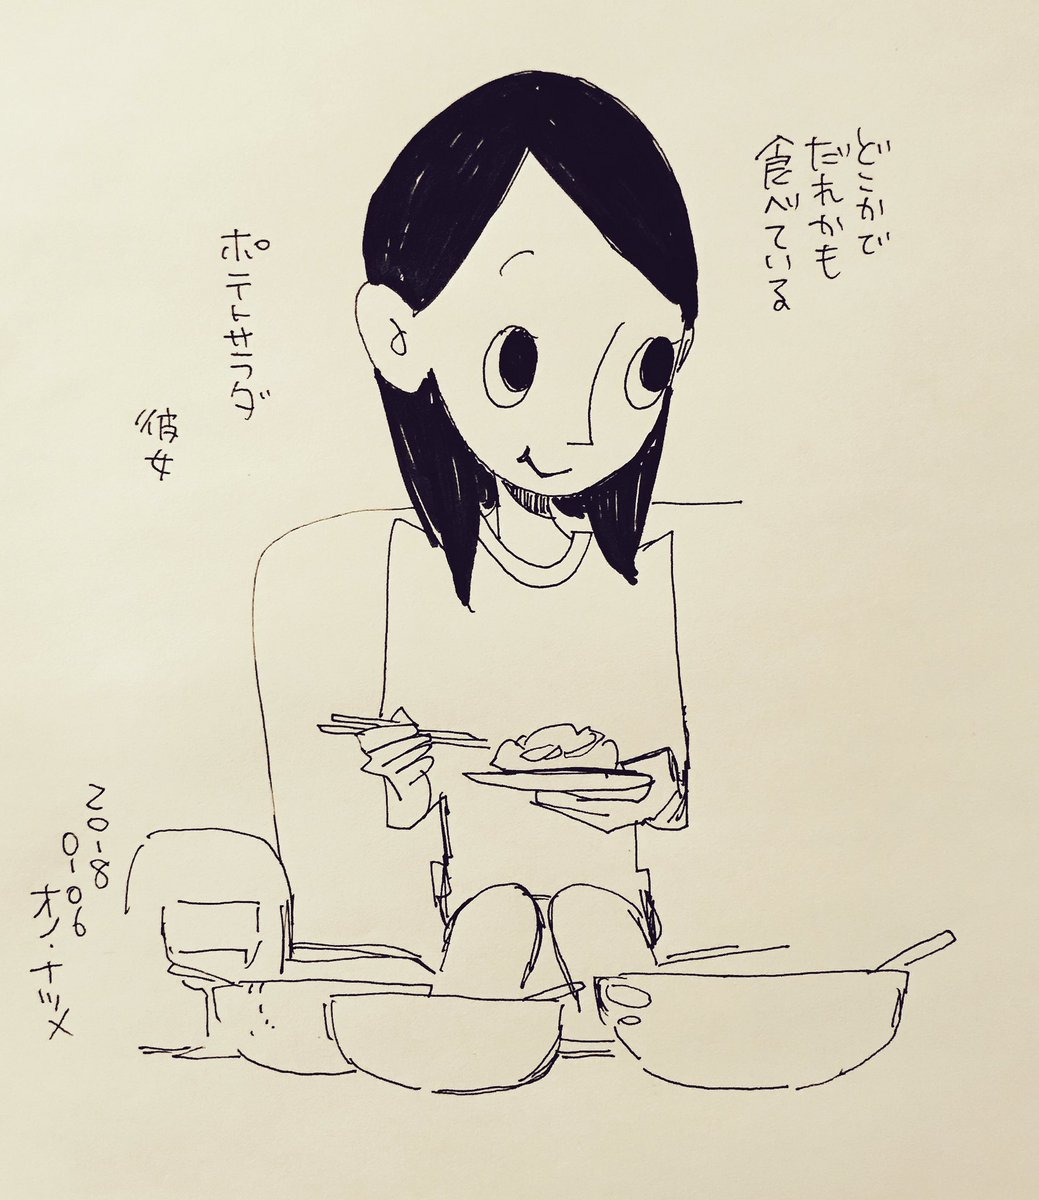 どこかで
だれかも
食べている
ポテトサラダ
彼女
2018
0106
オノ・ナツメ